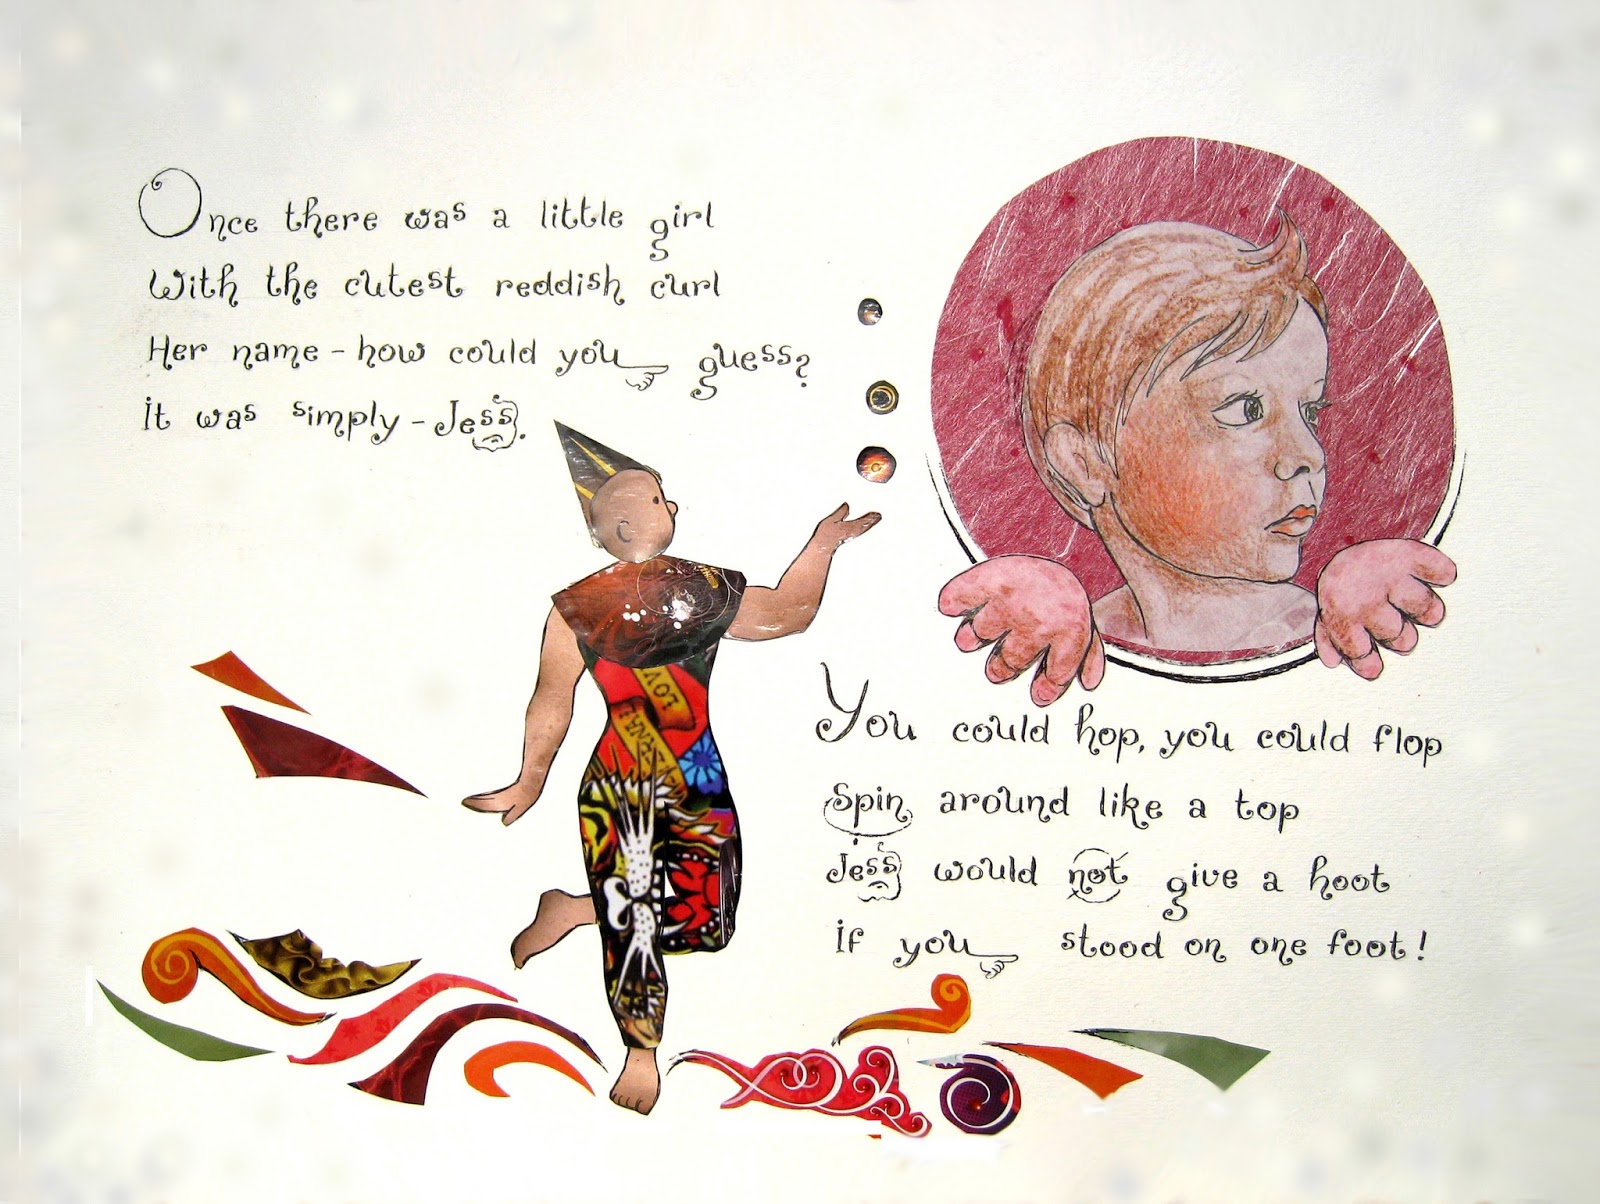 Once there was a little girl
With the cutest reddish curl
Her name - how could you guess?
It was simply - Jess.
LOV
ERNAL
You could hop, you could flop
Spin around like a top
Jess would not give a hoot
If you stood on one foot!